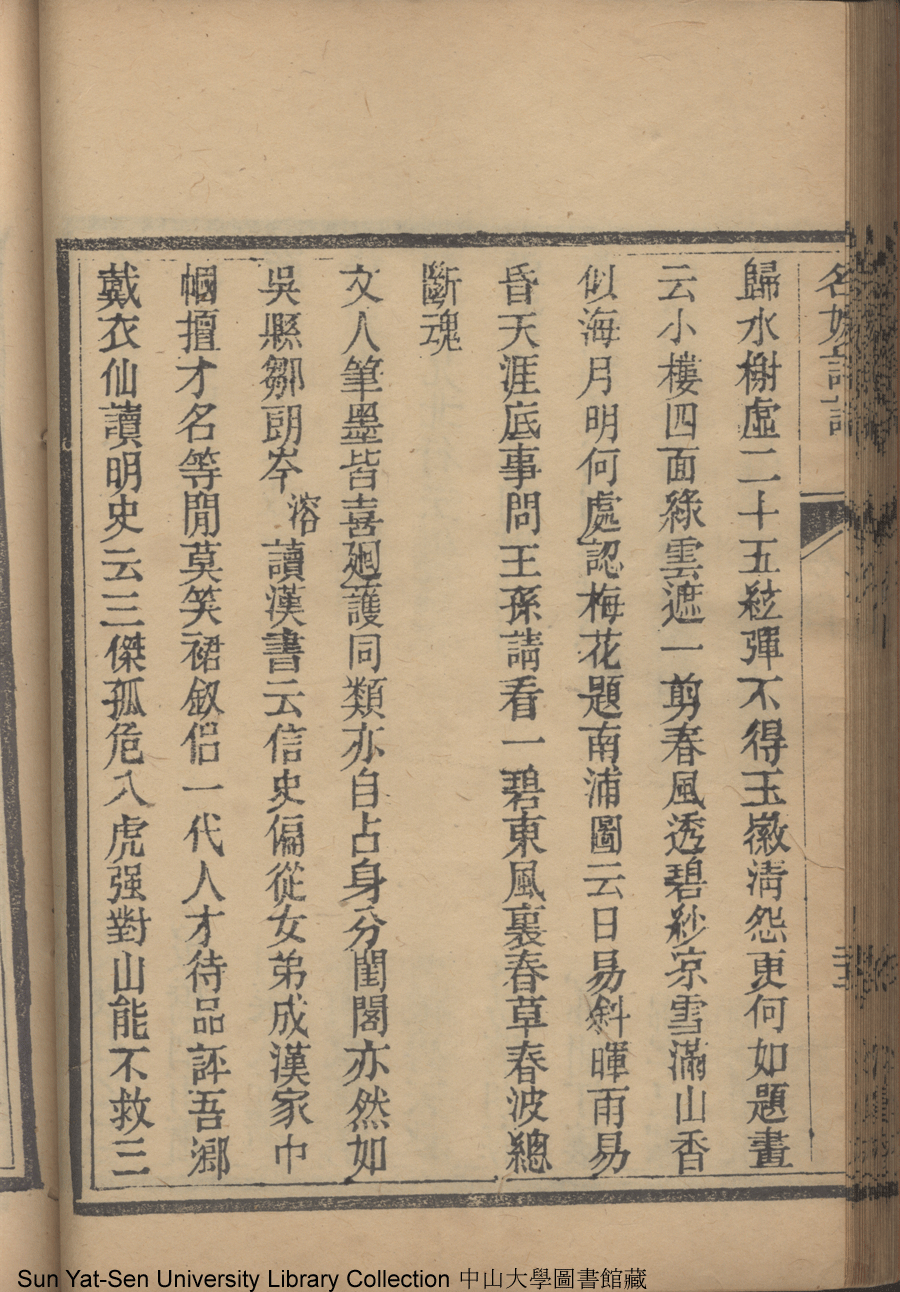 名媛詩話
歸水榭虛二十五絃彈不得玉徽淸怨更何如題畫
云小樓四面綠雲遮一剪春風透碧紗凉雪滿山香
似海月明何處認梅花題南浦圖云日易斜暉雨易
昏天涯底事問王孫請看一碧東風裏春草春波總
斷魂
文人筆墨皆喜廻護同類亦自占身分閨閣亦然如
吳縣鄒朗岑溶讀漢書云信史偏從女弟成漢家巾
幗擅才名等閒莫笑裙釵侶一代人才待品評吾鄉
戴衣仙讀明史云三傑孤危八虎强對山能不救三
Sun Yat-Sen University Library Collection 中山大學圖書館藏